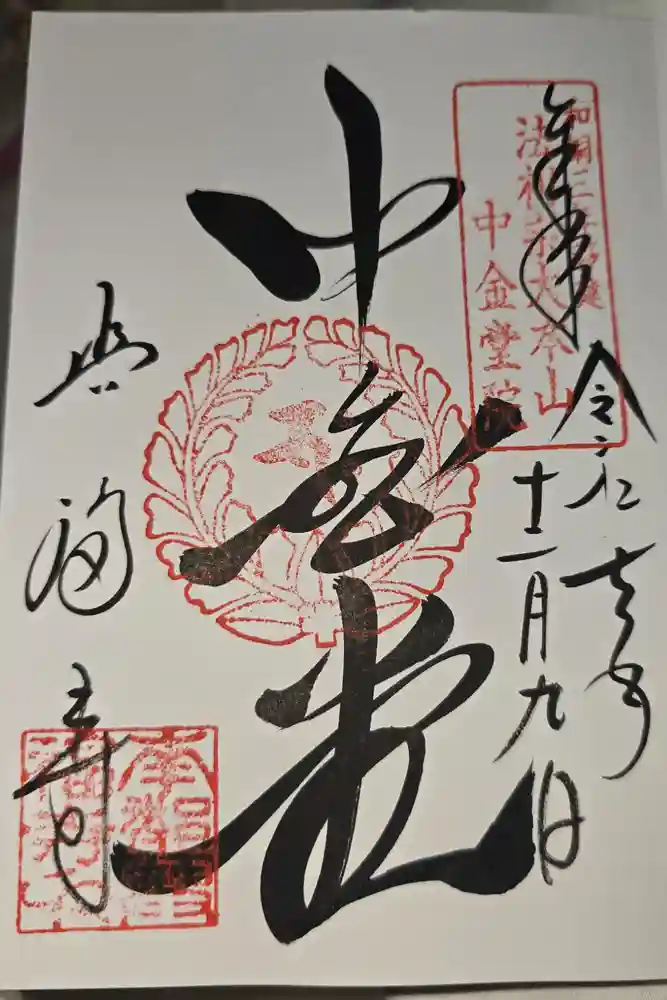 奉拝
和銅三年創建
法相宗大本山
中金堂院
令和七年
十二月九日
中金堂
興福寺